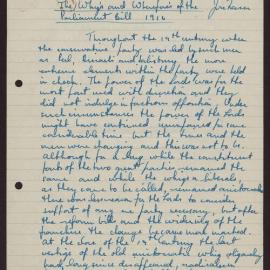 The Why's and Wherefores of the
Parliament Bill 1910
Throughout the 19th century when
the conservative party was led by such men
as Peel, Disraeli and Salisbury, the more
extreme elements within the party were held
in check. The power of the Lords was for the
most part used with discretion and they
did not indulge in factious opposition. Under
such circumstances the power of the Lords
might have continued unimpaired for a
considerable time but the times and the
men were changing and this was not to be.
Although for a long while the constituent
parts of the two great parties remained the
same and while the whigs or liberals,
as they came to be called, remained aristocratic
there was less reason for the Lords to consider
support of one party necessary, but after
the reform bills and the widening of the
franchise the change became more marked.
At the close of the 19th century the last
vestige of the old aristocratic whig oligarchy
had long since disappeared,